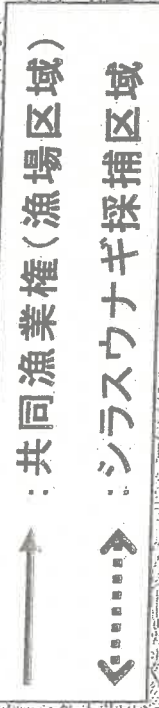 ：共同漁業権（漁場区域）
：シラスウナギ採捕区域